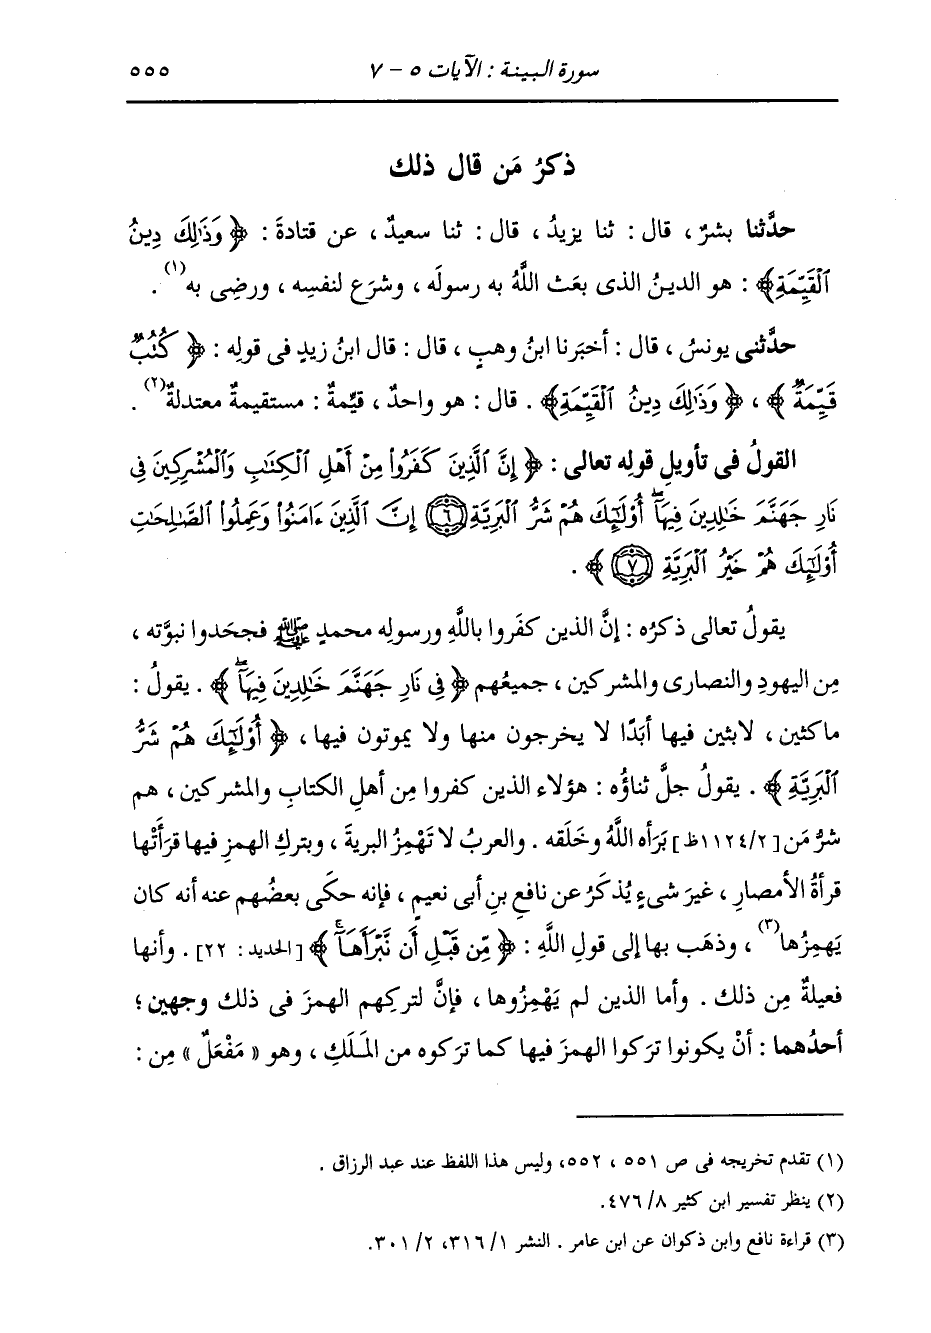 سورة البينة : الآيات ٥ - ٧ ٥٥٥
ذكرُ مَن قال ذلك
حدَّثنا بشرٌ ، قال : ثنا يزيدُ ، قال : ثنا سعيدٌ ، عن قتادةَ : ﴿ وَذَٰلِكَ دِينُ
ٱلْقَيِّمَةِ﴾ : هو الدينُ الذى بعَث اللَّهُ به رسولَه ، وشرَع لنفسِه ، ورضِى به(١) .
حدَّثنى يونسُ ، قال : أخبَرنا ابنُ وهبٍ ، قال : قال ابنُ زيدٍ فى قولِه : ﴿ كُتُبٌ
قَيِّمَةٌ ﴾ ، ﴿ وَذَٰلِكَ دِينُ ٱلْقَيِّمَةِ﴾ . قال : هو واحدٌ ، قيِّمةٌ : مستقيمةٌ معتدلةٌ(٢) .
القولُ فى تأويلِ قولِه تعالى : ﴿ إِنَّ ٱلَّذِينَ كَفَرُوا۟ مِنْ أَهْلِ ٱلْكِتَٰبِ وَٱلْمُشْرِكِينَ فِى
نَارِ جَهَنَّمَ خَٰلِدِينَ فِيهَآ ۚ أُو۟لَٰٓئِكَ هُمْ شَرُّ ٱلْبَرِيَّةِ ٦ إِنَّ ٱلَّذِينَ ءَامَنُوا۟ وَعَمِلُوا۟ ٱلصَّٰلِحَٰتِ
أُو۟لَٰٓئِكَ هُمْ خَيْرُ ٱلْبَرِيَّةِ ٧ ﴾ .
يقولُ تعالى ذكرُه : إنَّ الذين كفَروا باللَّهِ ورسولِه محمدٍ ﷺ فجحَدوا نبوَّته ،
مِن اليهودِ والنصارى والمشركين ، جميعُهم ﴿ فِى نَارِ جَهَنَّمَ خَٰلِدِينَ فِيهَآ ۚ ﴾ . يقولُ :
ماكثين ، لابثين فيها أبدًا لا يخرجون منها ولا يموتون فيها ، ﴿ أُو۟لَٰٓئِكَ هُمْ شَرُّ
ٱلْبَرِيَّةِ ﴾ . يقولُ جلَّ ثناؤُه : هؤلاء الذين كفروا مِن أهلِ الكتابِ والمشركين ، هم
شرُّ مَن [١١٢٤/٢ظ] بَرَأه اللَّهُ وخلَقه . والعربُ لا تَهْمِزُ البريةَ ، وبتركِ الهمزِ فيها قرَأَتْها
قرأةُ الأمصارِ ، غيرَ شىءٍ يُذكَرُ عن نافعِ بنِ أبى نعيمٍ ، فإنه حكَى بعضُهم عنه أنه كان
يَهمِزُها(٣) ، وذهَب بها إلى قولِ اللَّهِ : ﴿ مِّن قَبْلِ أَن نَّبْرَأَهَآ ۚ ﴾ [الحديد : ٢٢] . وأنها
فعيلةٌ مِن ذلك . وأما الذين لم يَهْمِزُوها ، فإنَّ لتركِهم الهمزَ فى ذلك وجهين ؛
أحدُهما : أنْ يكونوا ترَكوا الهمزَ فيها كما ترَكوه من المَلَكِ ، وهو « مَفْعَلٌ » مِن :
(١) تقدم تخريجه فى ص ٥٥١ ، ٥٥٢، وليس هذا اللفظ عند عبد الرزاق .
(٢) ينظر تفسير ابن كثير ٨/ ٤٧٦.
(٣) قراءة نافع وابن ذكوان عن ابن عامر . النشر ١/ ٣١٦، ٢/ ٣٠١.